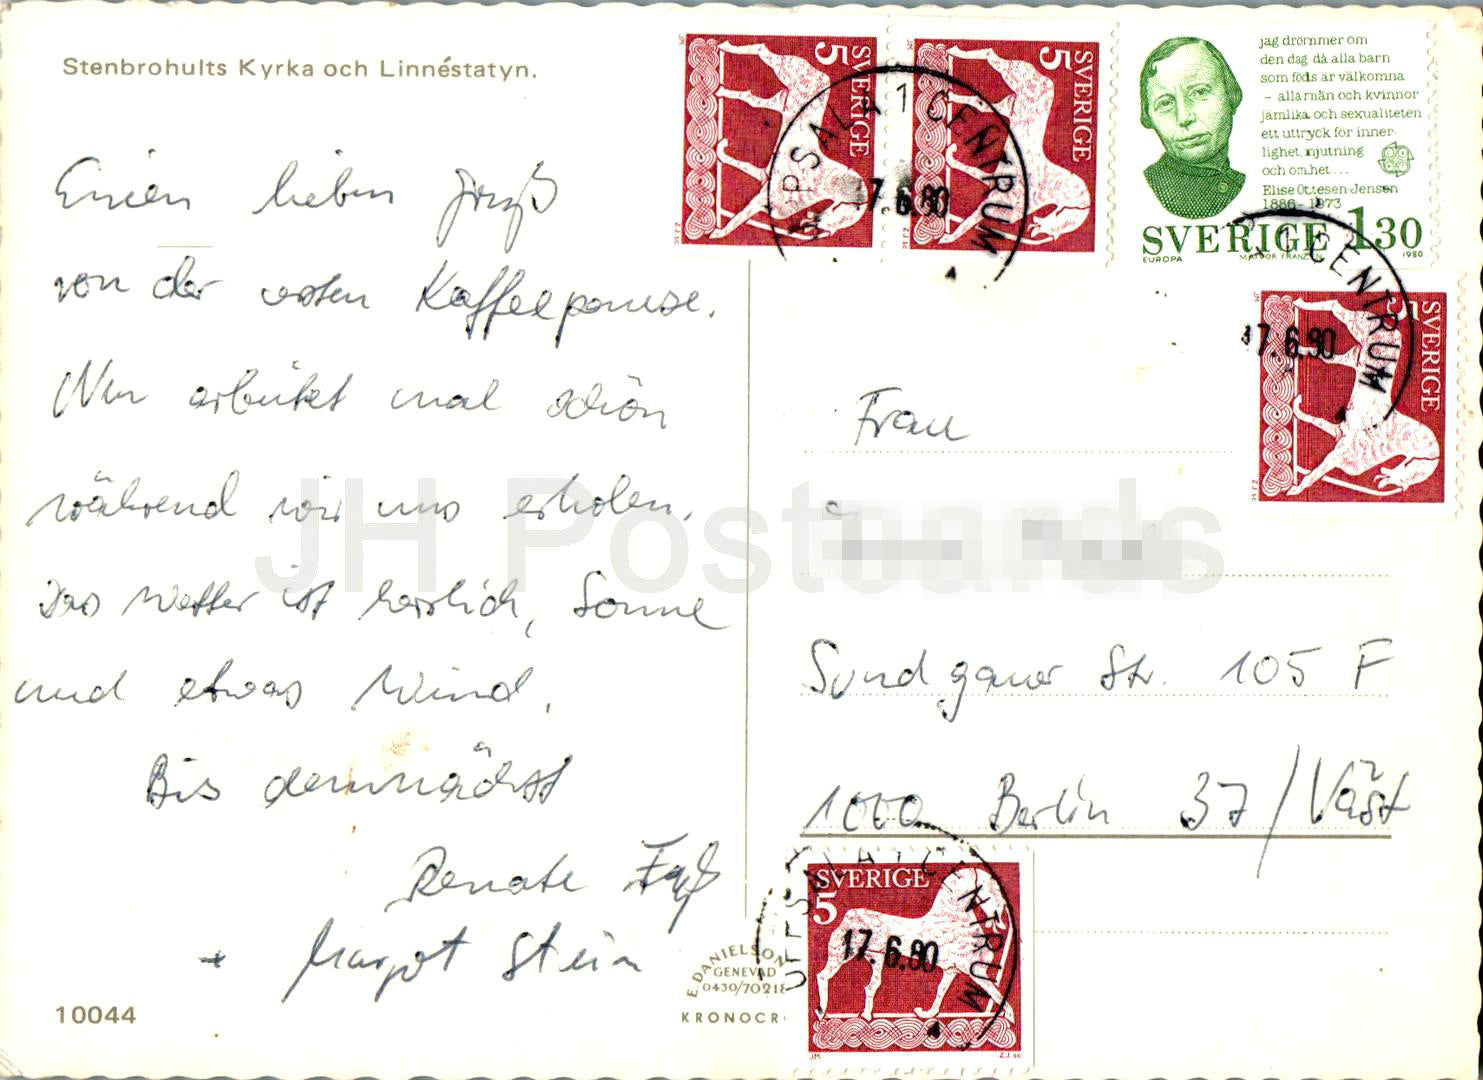 Stenbrohults Kyrka och Linnéstatyn.
Einen lieben Gruß
von der ersten Kaffeepause.
Nun arbeitet mal schön
während wir uns erholen.
Das Wetter ist herrlich, Sonne
und etwas Wind.
Bis demnächst
Renate
+ Margot Stein
10044
E. DANIELSON
GENEVAD
0430/70218
KRONOCR
SVERIGE
5
SVERIGE
5
UPSALA 1 CENTRUM
17.6.80
jag drömmer om
den dag då alla barn
som föds är välkomna
– alla män och kvinnor
jämlika och sexualiteten
ett uttryck för inner-
lighet, njutning
och ömhet...
Elise Ottesen-Jensen
1886-1973
SVERIGE 130
EUROPA
1980
1 CENTRUM
17.6.80
SVERIGE
5
Frau
Sundgauer Str. 105 F
1000 Berlin 37/Väst
SVERIGE
5
UPPSALA 1 CENTRUM
17.6.80
JM
ZJ.sc
JH Postcards